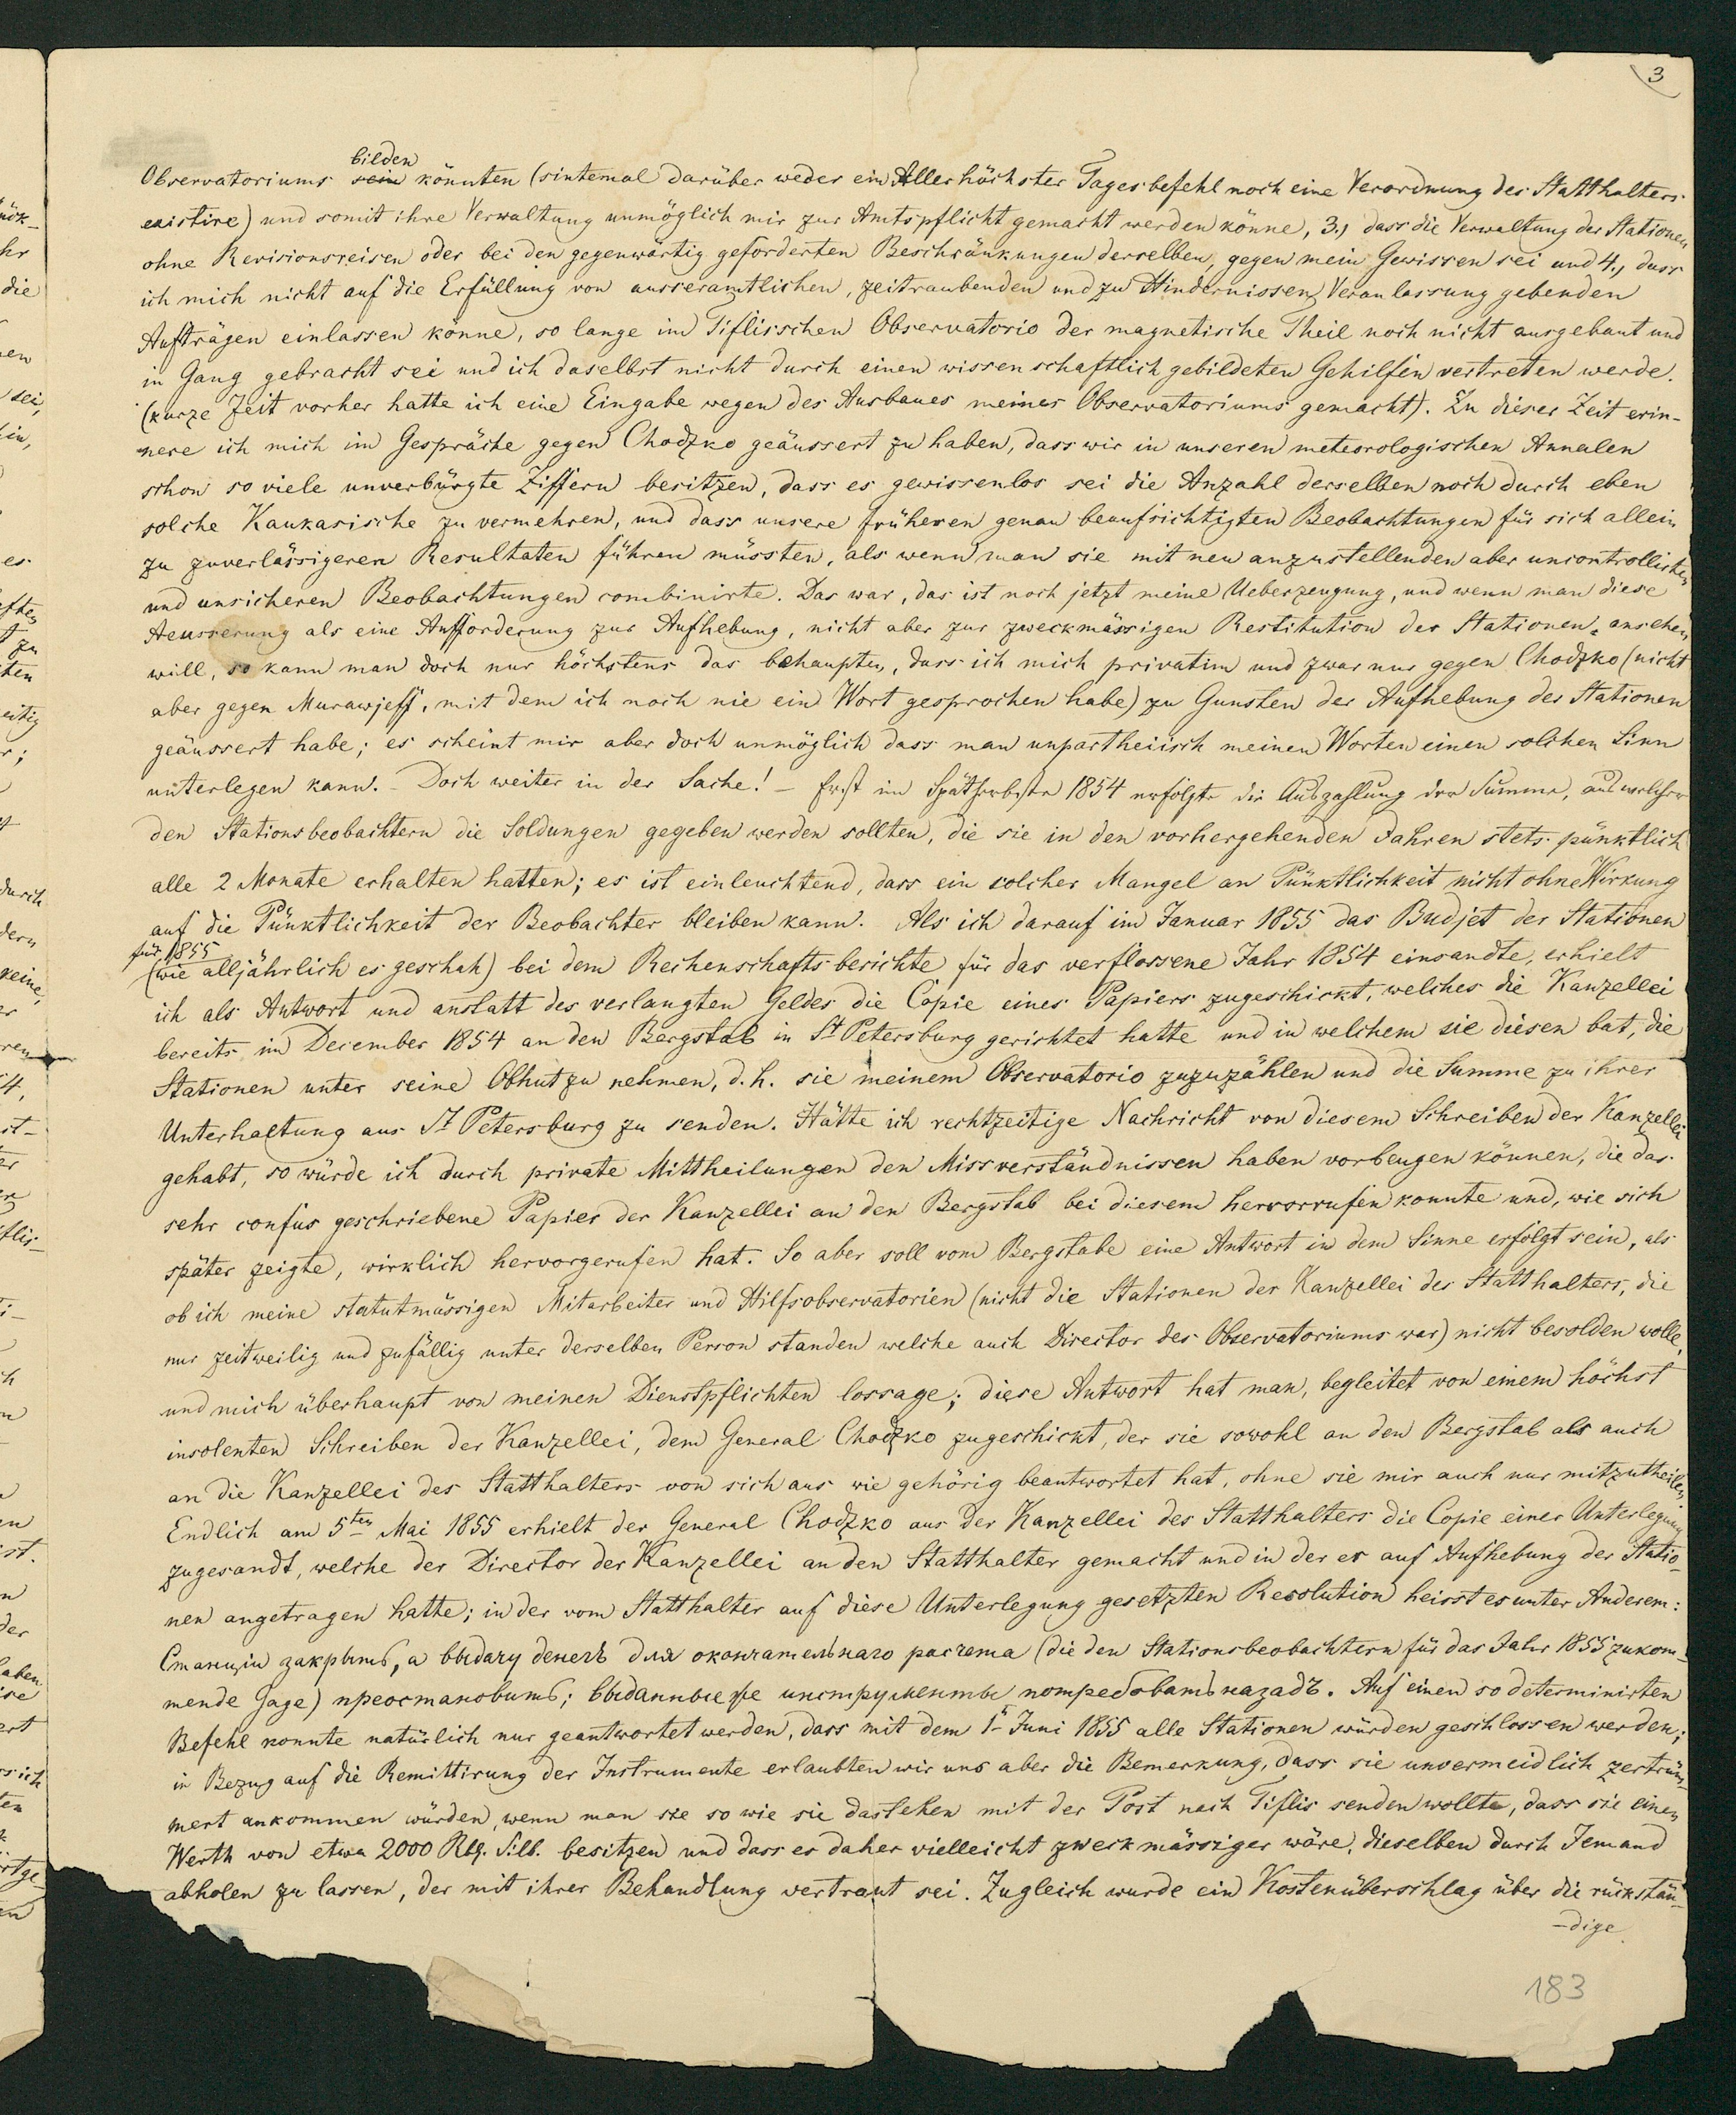 3
Observatoriums ~~sein~~ bilden könnten (sintemal darüber weder ein Allerhöchster Tagesbefehl noch eine Verordnung des Statthalters
existire) und somit ihre Verwaltung unmöglich mir zur Amtspflicht gemacht werden könne, 3., dass die Verwaltung der Stationen
ohne Revisionsreisen oder bei den gegenwärtig geforderten Beschränkungen derselben, gegen mein Gewissen sei und 4., dass
ich mich nicht auf die Erfüllung von ausseramtlichen, zeitraubenden und zu Hindernissen Veranlassung gebenden
Aufträgen einlassen könne, so lange im Tiflisschen Observatorio der magnetische Theil noch nicht ausgebaut und
in Gang gebracht sei und ich daselbst nicht durch einen wissenschaftlich gebildeten Gehilfen vertreten werde.
(kurze Zeit vorher hatte ich eine Eingabe wegen des Ausbaues meines Observatoriums gemacht). Zu dieser Zeit erin-
nere ich mich im Gespräche gegen Chodzko geäussert zu haben, dass wir in unseren meteorologischen Annalen
schon so viele unverbürgte Ziffern besitzen, dass es gewissenlos sei die Anzahl derselben noch durch eben
solche Kaukasische zu vermehren, und dass unsere früheren genau beaufsichtigten Beobachtungen für sich allein
zu zuverlässigeren Resultaten führen müssten, als wenn man sie mit neu anzustellenden aber uncontrollirten
und unsicheren Beobachtungen combinirte. Das war, das ist noch jetzt meine Ueberzeugung, und wenn man diese
Aeusserung als eine Aufforderung zur Aufhebung, nicht aber zur zweckmässigen Restitution der Stationen, ansehen
will, so kann man doch nur höchstens das behaupten, dass ich mich privatim und zwar nur gegen Chodzko (nicht
aber gegen Murawjeff, mit dem ich noch nie ein Wort gesprochen habe) zu Gunsten der Aufhebung der Stationen
geäussert habe; es scheint mir aber doch unmöglich dass man unpartheiisch meinen Worten einen solchen Sinn
unterlegen kann. – Doch weiter in der Sache! – Erst im Spätherbste 1854 erfolgte die Auszahlung der Summe, aus welcher
den Stationsbeobachtern die Soldungen gegeben werden sollten, die sie in den vorhergehenden Jahren stets pünktlich
alle 2 Monate erhalten hatten; es ist einleuchtend, dass ein solcher Mangel an Pünktlichkeit nicht ohne Wirkung
auf die Pünktlichkeit der Beobachter bleiben kann. Als ich darauf im Januar 1855 das Budjet der Stationen
für 1855
(wie alljährlich es geschah) bei dem Rechenschaftsberichte für das verflossene Jahr 1854 einsandte, erhielt
ich als Antwort und anstatt des verlangten Geldes die Copie eines Papiers zugeschickt, welches die Kanzellei
bereits im December 1854 an den Bergstab in St Petersburg gerichtet hatte und in welchem sie diesen bat, die
Stationen unter seine Obhut zu nehmen, d. h. sie meinem Observatorio zuzuzählen und die Summe zu ihrer
Unterhaltung aus St Petersburg zu senden. Hätte ich rechtzeitige Nachricht von diesem Schreiben der Kanzellei
gehabt, so würde ich durch private Mittheilungen den Missverständnissen haben vorbeugen können, die das
sehr confus geschriebene Papier der Kanzellei an den Bergstab bei diesem hervorrufen konnte und, wie sich
später zeigte, wirklich hervorgerufen hat. So aber soll vom Bergstabe eine Antwort in dem Sinne erfolgt sein, als
ob ich meine statutmässigen Mitarbeiter und Hilfsobservatorien (nicht die Stationen der Kanzellei des Statthalters, die
nur zeitweilig und zufällig unter derselben Person standen welche auch Director des Observatoriums war) nicht besolden wolle,
und mich überhaupt von meinen Dienstpflichten lossage; diese Antwort hat man, begleitet von einem höchst
insolenten Schreiben der Kanzellei, dem General Chodzko zugeschickt, der sie sowohl an den Bergstab als auch
an die Kanzellei des Statthalters von sich aus wie gehörig beantwortet hat, ohne sie mir auch nur mitzutheilen.
Endlich am 5ten Mai 1855 erhielt der General Chodzko aus der Kanzellei des Statthalters die Copie einer Unterlegung
zugesandt, welche der Director der Kanzellei an den Statthalter gemacht und in der er auf Aufhebung der Statio-
nen angetragen hatte; in der vom Statthalter auf diese Unterlegung gesetzten Resolution heisst es unter Anderem:
Станціи закрыть, а выдачу денегъ для окончательнаго расчета (die den Stationsbeobachtern für das Jahr 1855 zukom-
mende Gage) преостановить; выданные же инструменты потребовать назадъ. Auf einen so determinirten
Befehl konnte natürlich nur geantwortet werden, dass mit dem 1t Juni 1855 alle Stationen würden geschlossen werden;
in Bezug auf die Remittirung der Instrumente erlaubten wir uns aber die Bemerkung, dass sie unvermeidlich zertrüm-
mert ankommen würden, wenn man sie so wie sie dastehen mit der Post nach Tiflis senden wollte, dass sie einen
Werth von etwa 2000 Rbl. Silb. besitzen und dass es daher vielleicht zweckmässiger wäre, dieselben durch Jemand
abholen zu lassen, der mit ihrer Behandlung vertraut sei. Zugleich wurde ein Kostenüberschlag über die rückstän-
-dige
183